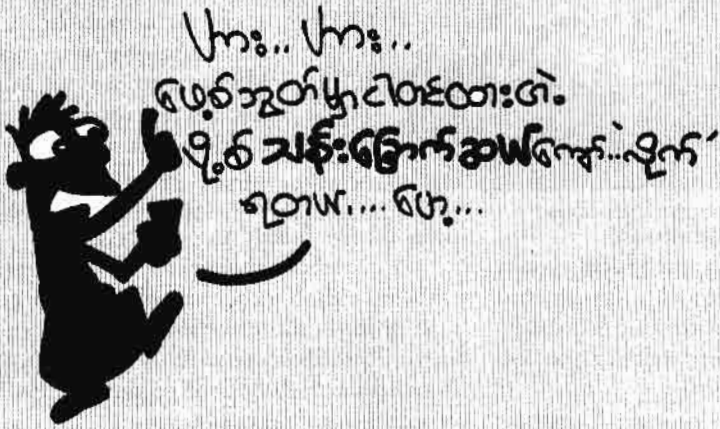 ဟား.. ဟား..
ဖေ့စ်ဘွတ်မှာငါတင်ထားတဲ့
ပို့စ် သန်းခြောက်ဆယ်ကျော်..လိုက်
ရတယ.... ဟေ့...